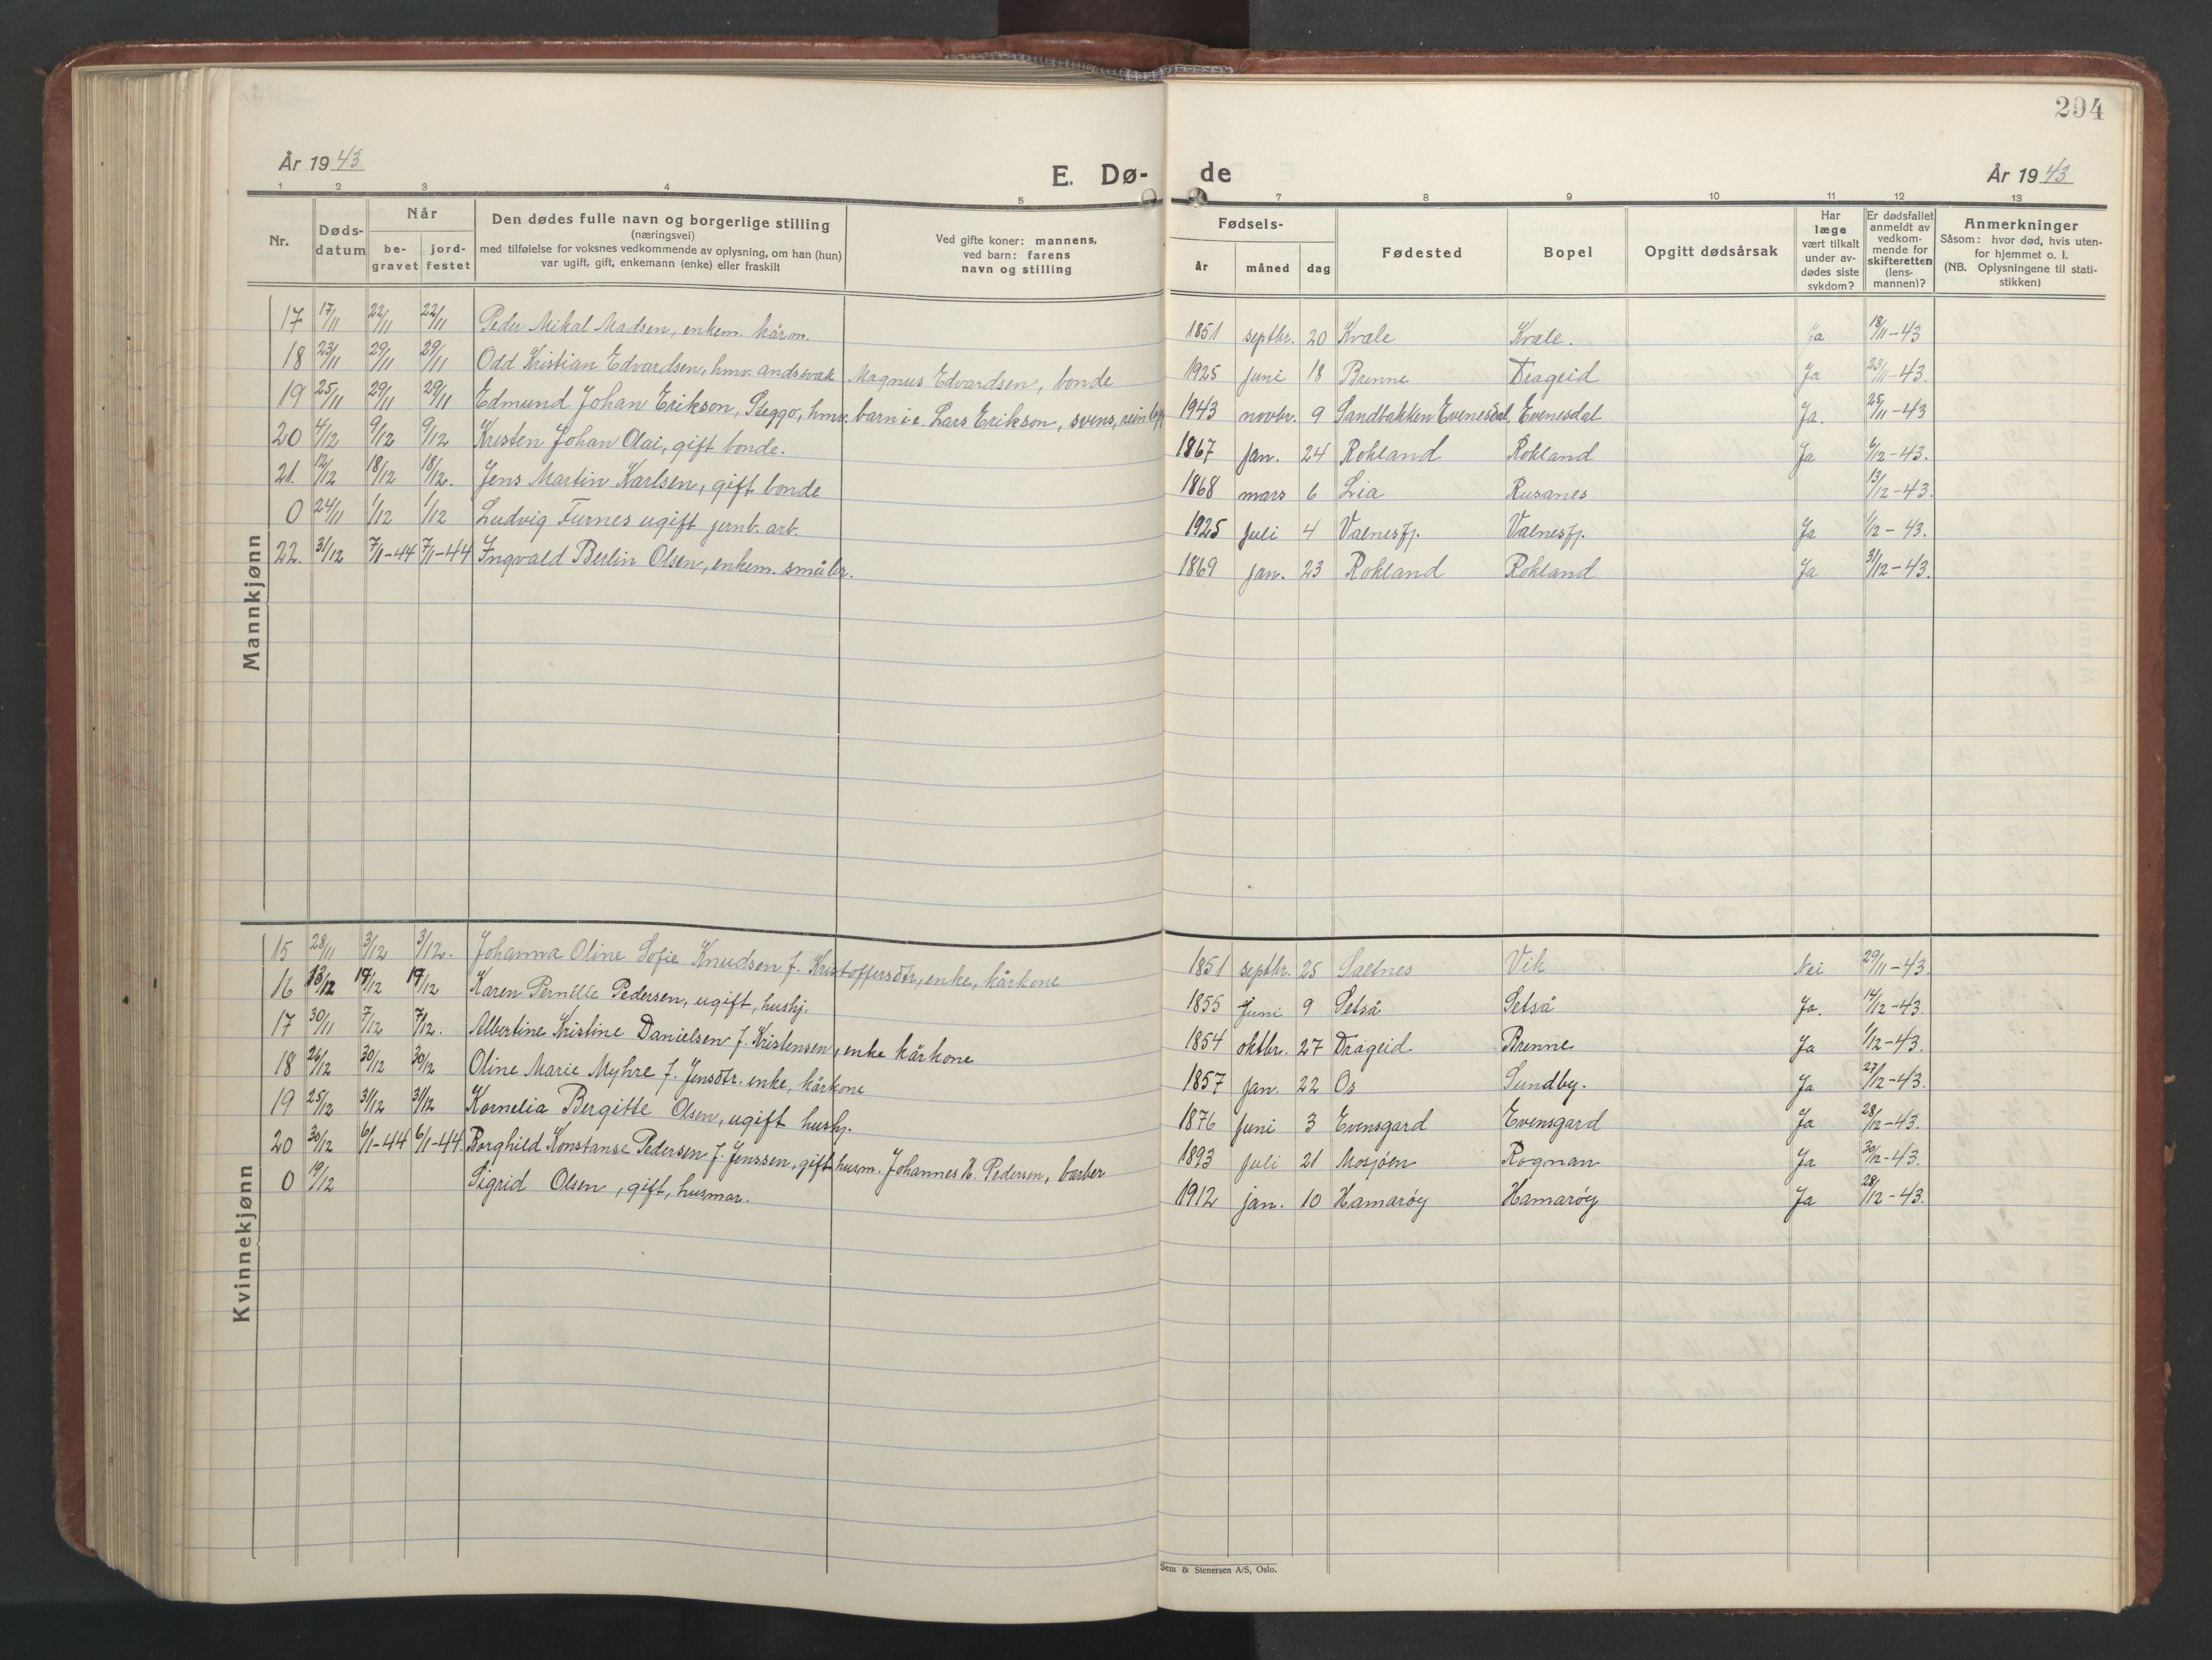 294
År 1943 E. Dø- de År 1943
1 2 3 4 5 7 8 9 10 11 12 13
Nr. Dødsdatum Når begravet jordfestet Den dødes fulle navn og borgerlige stilling (næringsvei) med tilføielse for voksnes vedkommende av oplysning, om han (hun) var ugift, gift, enkemann (enke) eller fraskilt Ved gifte koner: mannens, ved barn: farens navn og stilling Fødsels- år måned dag Fødested Bopel Opgitt dødsårsak Har læge vært tilkalt under avdødes siste sykdom? Er dødsfallet anmeldt av vedkommende for skifteretten (lensmannen)? Anmerkninger Såsom: hvor død, hvis utenfor hjemmet o. l. (NB. Oplysningene til statistikken)
Mannkjønn
17 17/11 22/11 22/11 Peder Mikal Madsen, enkem. kårm. 1851 septbr. 20 Kvæle Kvæle. Ja 18/11-43
18 23/11 29/11 29/11 Odd Kristian Edvardsen, hmv. åndssvak Magnus Edvardsen, bonde 1925 juni 18 Brenne Drageid Ja 23/11-43.
19 25/11 29/11 29/11 Edmund Johan Erikson, Steggo, hmv. barn i e. Lars Erikson, svens, 1943 novbr. 9 Sandbakken Evenesdal, Evenesdal Ja. 25/11-43
20 4/12 9/12 9/12 Kristen Johan Olai, gift bonde. 1867 jan. 24 Rokland Rokland Ja 6/12-43.
21. 12/12 18/12 18/12. Jens Martin Karlsen, gift bonde 1868 mars 6 Lia Rusanes 13/12-43.
0 24/11 1/12 1/12 Ludvig Furnes ugift jernb. arb. 1925 juli 4 Valnesfj. Valnesfj. Ja 1/12-43.
22. 31/12 7/1-44 7/1-44 Ingvald Berlin Olsen, enkem. småbr. 1869 jan. 23 Rokland Rokland Ja 31/12-43.
Kvinnekjønn
15 28/11 3/12 3/12. Johanna Oline Sofie Knudsen f. Kristoffersdtr, enke, kårkone 1851 septbr. 25 Saltnes Vik Nei 29/11-43.
16 13/12 19/12 19/12 Karen Pernille Pedersen, ugift, hushj. 1855 juni 9 Setså Setså Ja. 14/12-43.
17 30/11 7/12 7/12. Albertine Kristine Danielsen f. Kristensen, enke kårkone 1854 oktbr. 27 Drageid Brenne Ja 1/12-43.
18 26/12 30/12 30/12 Oline Marie Myhre f. Jensdtr. enke, kårkone 1857 jan. 22 Os Sundby. Ja 27/12-43.
19 25/12 31/12 31/12 Kornelia Bergitte Olsen, ugift hushj. 1876 juni 3 Evensgard Evensgard Ja 28/12-43.
20 30/12 6/1-44 6/1-44. Borghild Konstanse Pedersen f. Jenssen, gift husm. Johannes N. Pedersen, barber 1893 juli 21 Mosjöen Rognan Ja 30/12-43.
0 19/12 Sigrid Olsen, gift, husmor. 1912 jan. 10 Hamaröy Hamaröy Ja 28/12-43.
Sem & Stenersen A/S, Oslo.